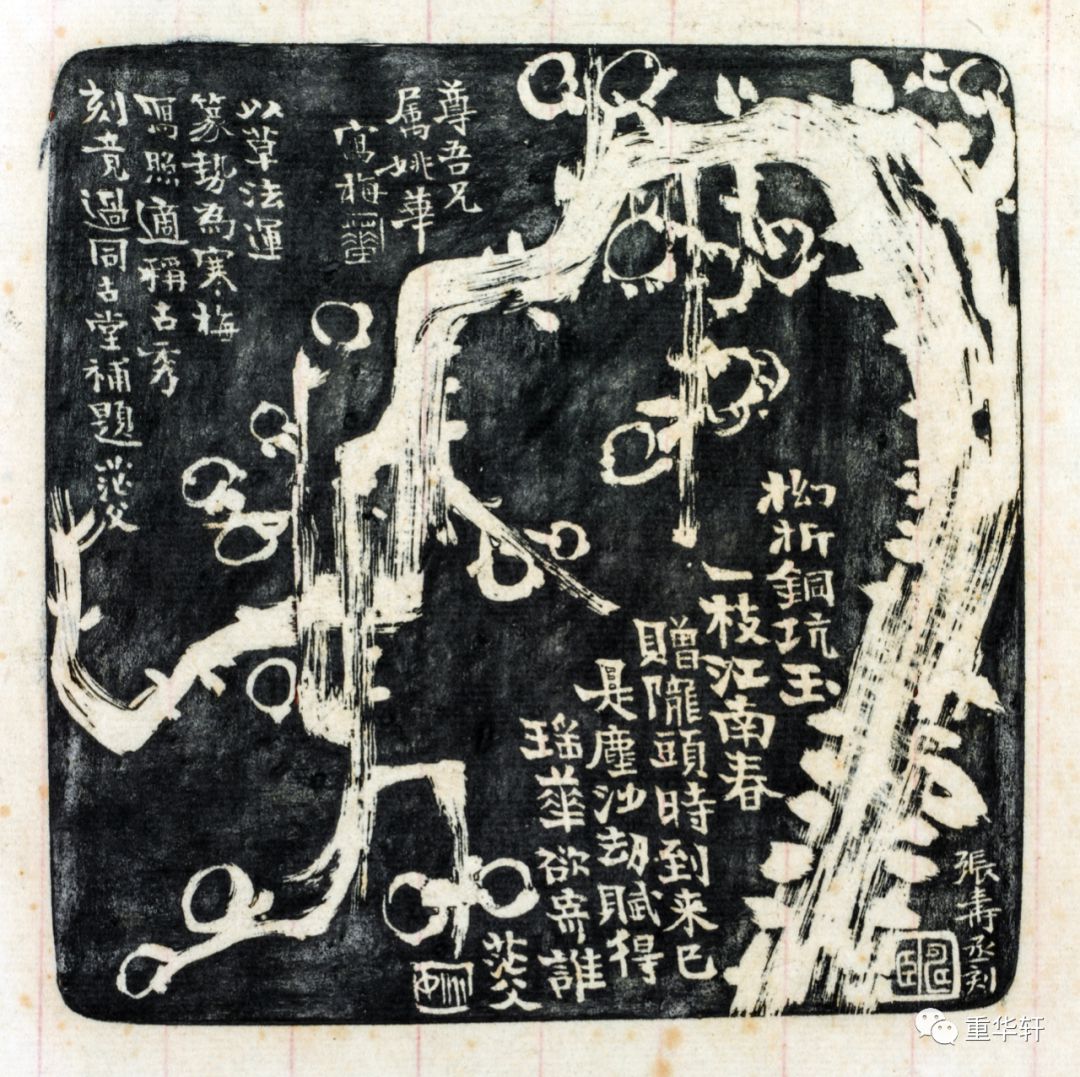 尊吾兄
属姚華
寫梅
以草法運
篆勢為寒梅
寫照適稱古秀
刻竟過同古堂補題茫父
拗折銅坑玉
一枝江南春
贈隴頭時到来已
貽
是塵沙劫賦得
瑶華欲寄誰
茫父
張壽丞刻
重华轩